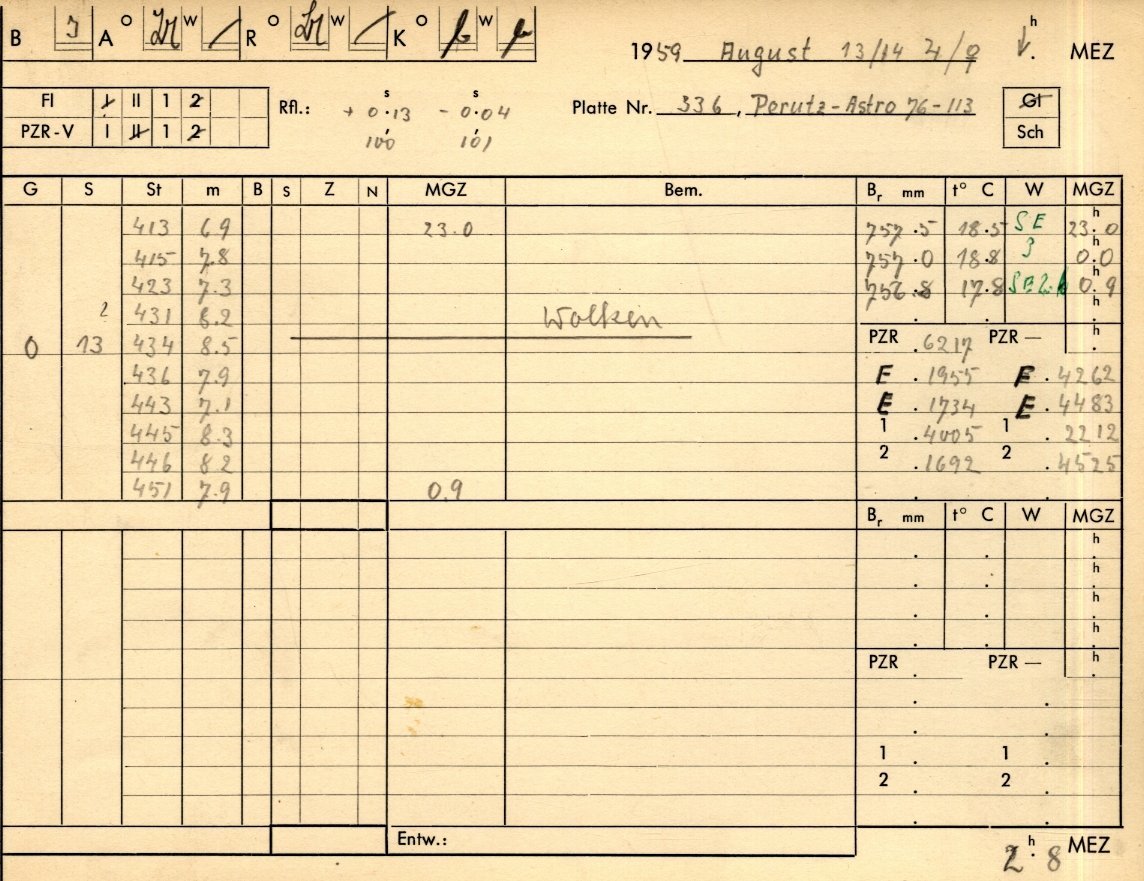 B J A O W R O W K O W
1959 August 13/14 h MEZ
Fl I II 1 2
PZR-V I II 1 2
Rfl.: + 0.13 s - 0.04 s
100 101
Platte Nr. 336, Perutz-Astro 76-113
Gl
Sch
G S St m B S Z N MGZ Bem. Br mm t° C W MGZ
413 6.9 23.0 757.5 18.5 SE 23.0 h
415 7.8 757.0 18.8 3 0.0 h
423 7.3 756.8 17.8 SE2 0.9 h
2 431 8.2 Wolken . . h
0 13 434 8.5 PZR .6217 PZR — . h
436 7.9 E .1955 E .4262
443 7.1 E .1734 E .4483
445 8.3 1 .4005 1 2212
446 8.2 2 .1692 2 .4525
451 7.9 0.9
Br mm t° C W MGZ
. . h
. . h
. . h
. . h
PZR . PZR — h
. .
. .
1 . 1 .
2 . 2 .
Entw.:
2.8 h MEZ